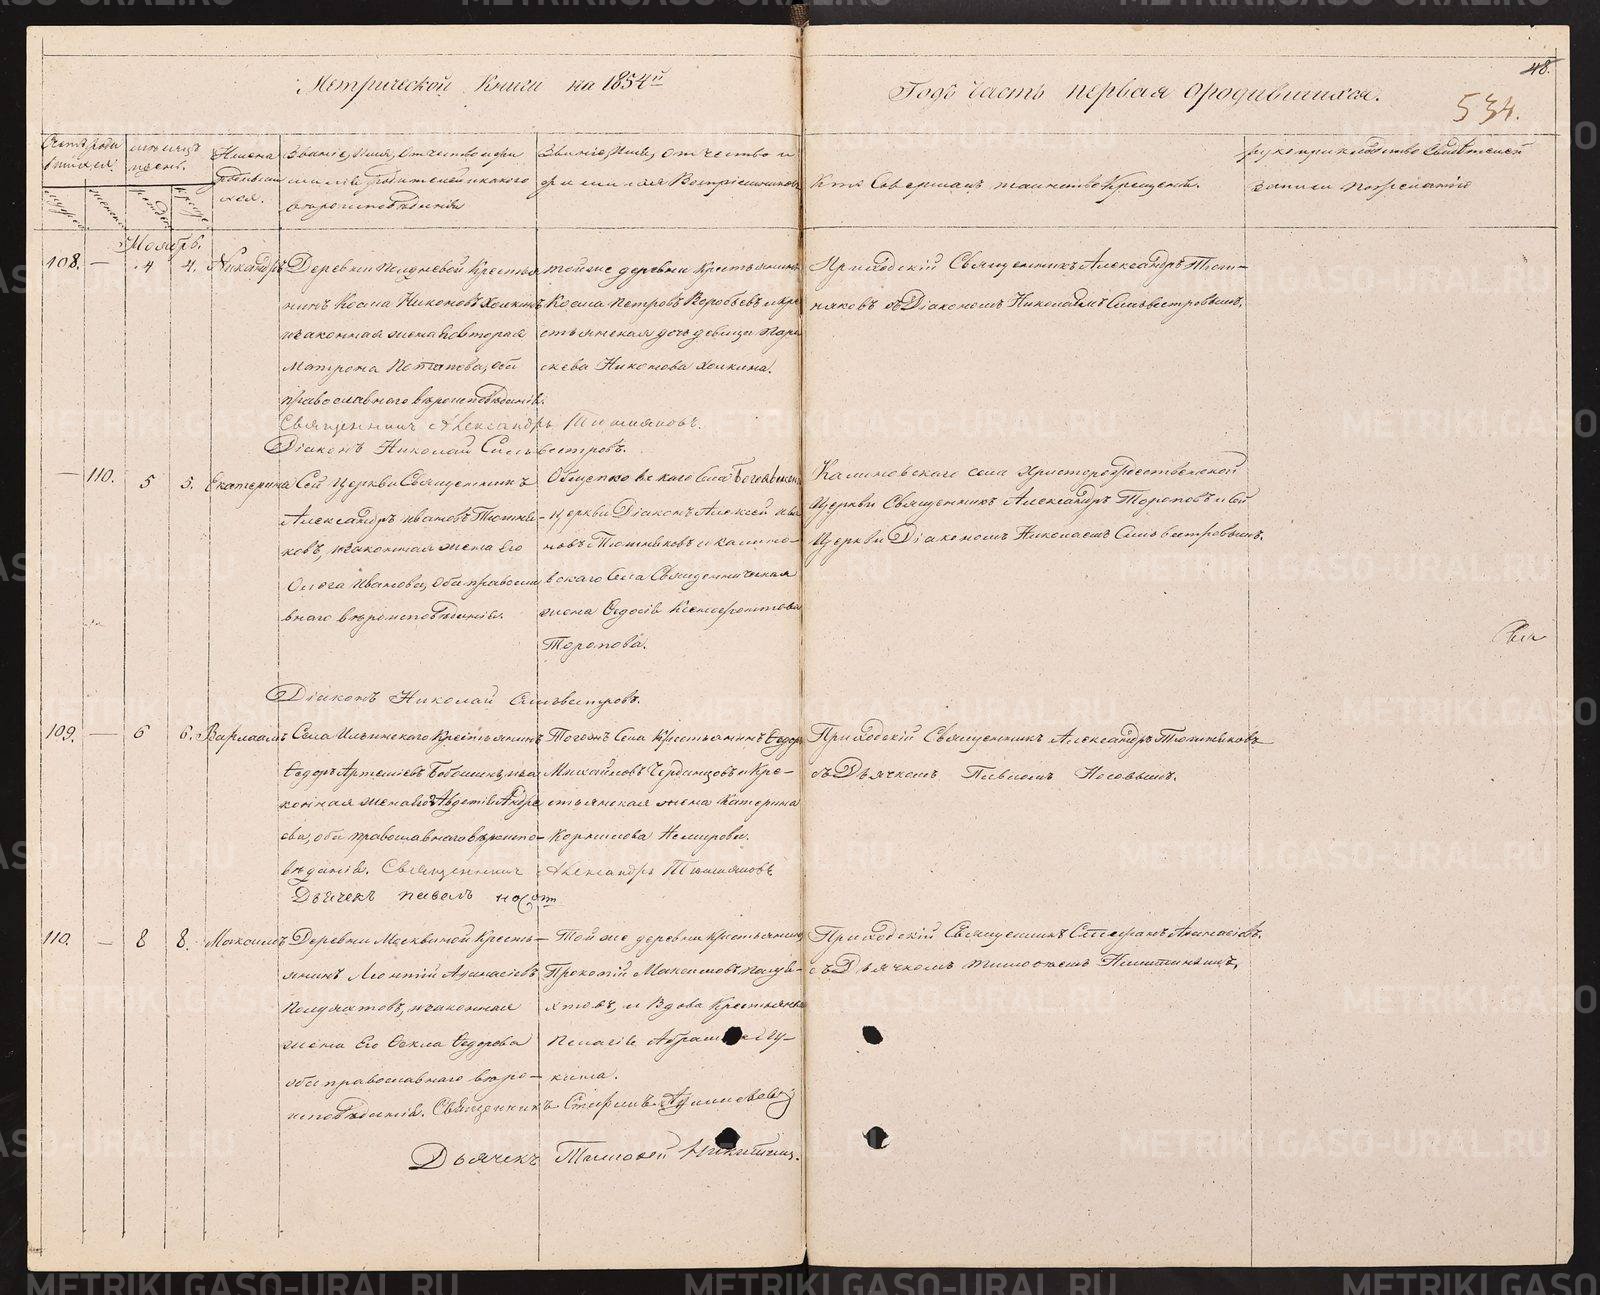 Метрической Книги на 1854й
Годъ часть первая о родившихся.
48.
534.
Счетъ роди
вшихся.
мѣсяцъ
и день.
Имена
родивши
хся.
Званіе, имя, отчество и фа
милія родителей и какого
вѣроисповѣданія
Званіе, имя, отчество и
фамилія Воспріемниковъ
Кто Совершалъ таинство Крещенія.
рукоприкладство Свидѣтелей
записи по желанію
Ноябрь.
108. — 4 4. Никандръ
Деревни Полдневой Крестья
нинъ Косма Никоновъ Холкинъ
и законная жена его вторая
Матрона Потапова, оба
православнаго вѣроисповѣданія.
той же деревни Крестьянинъ
Косма Петровъ Воробьевъ и кре
стьянская дочь девица Пара
скева Никонова Холкина.
Приходскій Священникъ Александръ Тюш-
няковъ съ Діакономъ Николаемъ Сильвестровымъ.
Священникъ Александръ Тюшняковъ.
Діаконъ Николай Сильвестровъ.
— 110. 5 5. Екатерина
Сей Церкви Священникъ
Александръ Ивановъ Тюшня-
ковъ, и законная жена его
Ольга Иванова, оба правосла
внаго вѣроисповѣданія.
Села Богоявленской
церкви Діаконъ Алексей Ива
новъ Тюшняковъ и Калино-
вскаго Села Священническая
жена Ѳедосія Ксенофонтова
Торопова.
Калиновскаго села Христорождественской
Церкви Священникъ Александръ Тороповъ и Сей
Церкви Діакономъ Николаемъ Сильвестровымъ.
Діаконъ Николай Сильвестровъ.
109. — 6 6. Варлаамъ
Села Ильинскаго Крестьянинъ
Ѳедоръ Артеміевъ Бабошинъ, и за
конная жена его Авдотія Андре
ева, оба православнаго вѣроиспо-
вѣданія. Священникъ Александръ Тюшняковъ
Дьячекъ павелъ носовъ
Тогожъ Села Крестьянинъ Ѳедоръ
Михайловъ Чердынцовъ и Кре-
стьянская жена Катерина
Корнилова Немирова.
Приходскій Священникъ Александръ Тюшняковъ
съ Дьячкомъ Павломъ Носовымъ.
110. — 8 8. Максимъ
Деревни Москвиной Кресть-
янинъ Леонтій Аѳанасіевъ
Полуяхтовъ, и законная
жена Его Ѳекла Ѳедорова
оба православнаго вѣро-
исповѣданія. Священникъ Стефанъ
Той же деревни Крестьянинъ
Прокопій Максимовъ Полуя-
хтовъ, и Вдова Крестьянка
Пелагія
кина.
Приходскій Священникъ Стефанъ
съ Дьячкомъ Тимофеемъ Никитинымъ.
Дьячекъ Тимофей Никитинъ.
METRIKI.GASO-URAL.RU